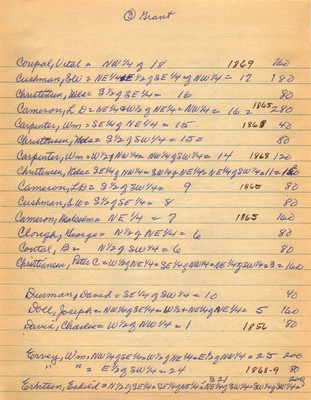 ③ Grant
Coupal, Vital = NW¼ of 18 1869 160
Cushman, SW = NE¼ + E½ of SE¼ + of NW¼ = 17 180
Christensen, Nels = S½ of SE¼ = 16 80
Cameron, L D = NE¼ + W½ of NE¼ = NW¼ = 16 = 1865 280
Carpenter, Wm = SE¼ of NE¼ = 15 1868 40
Christensen, Nels = S½ of SW¼ = 15 = 80
Carpenter, Wm = W½ of NW¼ = NW¼ of SW¼ = 14 1868 120
Christensen, Nels = SE¼ of NW¼ = SW¼ of NE¼ = NE¼ of SW¼ = 11 = 160
Cameron, L D = S½ of SW¼ = 9 1865 80
Cushman, S W = S½ of SE¼ = 8 80
Cameron, Malcolm = NE¼ = 7 1865 160
Clough, George = N½ of NE¼ = 6 80
Contal, B = N½ of SW¼ = 6 80
Christiansen, Peter C = W½ of NW¼ = SE¼ of NW¼ = NE¼ of SW¼ = 3 = 160
Durman, David = SE¼ of SW¼ = 10 40
Doll, Joseph = NW¼ of SE¼ = W½ of NE¼ = NE¼ of NE¼ = 5 160
Davis, Charles = W½ of NW¼ = 1 1856 80
Envey, Wm = NW¼ of SE¼ = W½ of NE¼ = E½ of NW¼ = 25 200
" " = E½ of SW¼ = 24 1868-9 80
= N½ of SE¼ = SE¼ of NE¼ = NE¼ of SW¼ = SW¼ of SW¼ = 321 200